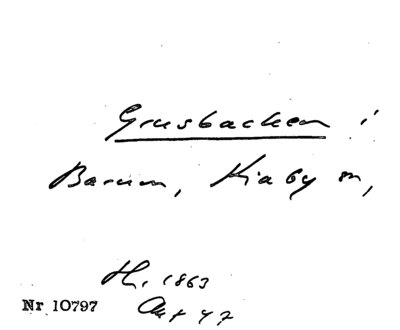 Grusbacken i
Barum, Kiaby sn,
H. 1863
Akt 47
Nr 10797